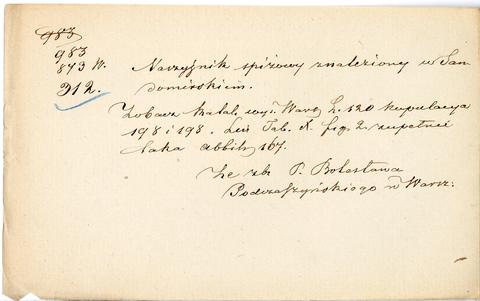 983
983
873 W.
312.
Naszyjnik spiżowy znaleziony w San
domirskiem.
Zobacz Katal. wys. Warsz. L. 120 kopulacya
198 i 198. Tab. X. fig. 2. zupełnie
taka 167.
Ze zb. P. Bolesława
Podczaszyńskiego w Warsz: